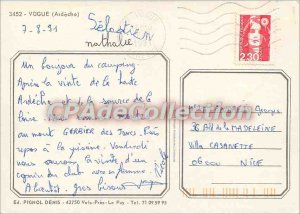 3452 - VOGUE (Ardèche)
7-8-91
Sébastien
nathalie
2,30
Un bonjour du camping
Après la visite de la haute
Ardèche et la source de la
Loire
PADeCollection
au mont GERBIER des Joncs. Puis
repos à la piscine. Vendredi
nous aurons la visite d'un
copain du club avec sa femme
A bientôt. gros bisous
Georges
36 Allée de la MADELEINE
Villa CASANETTE
06000 NICE
Ed. PIGNOL DENIS - 43750 Vals-Près-Le Puy - Tel. 71 09 59 93